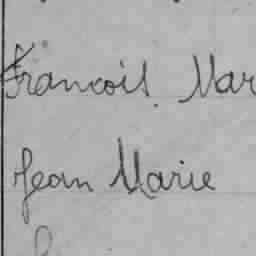 Francois. Mar
Jean Marie